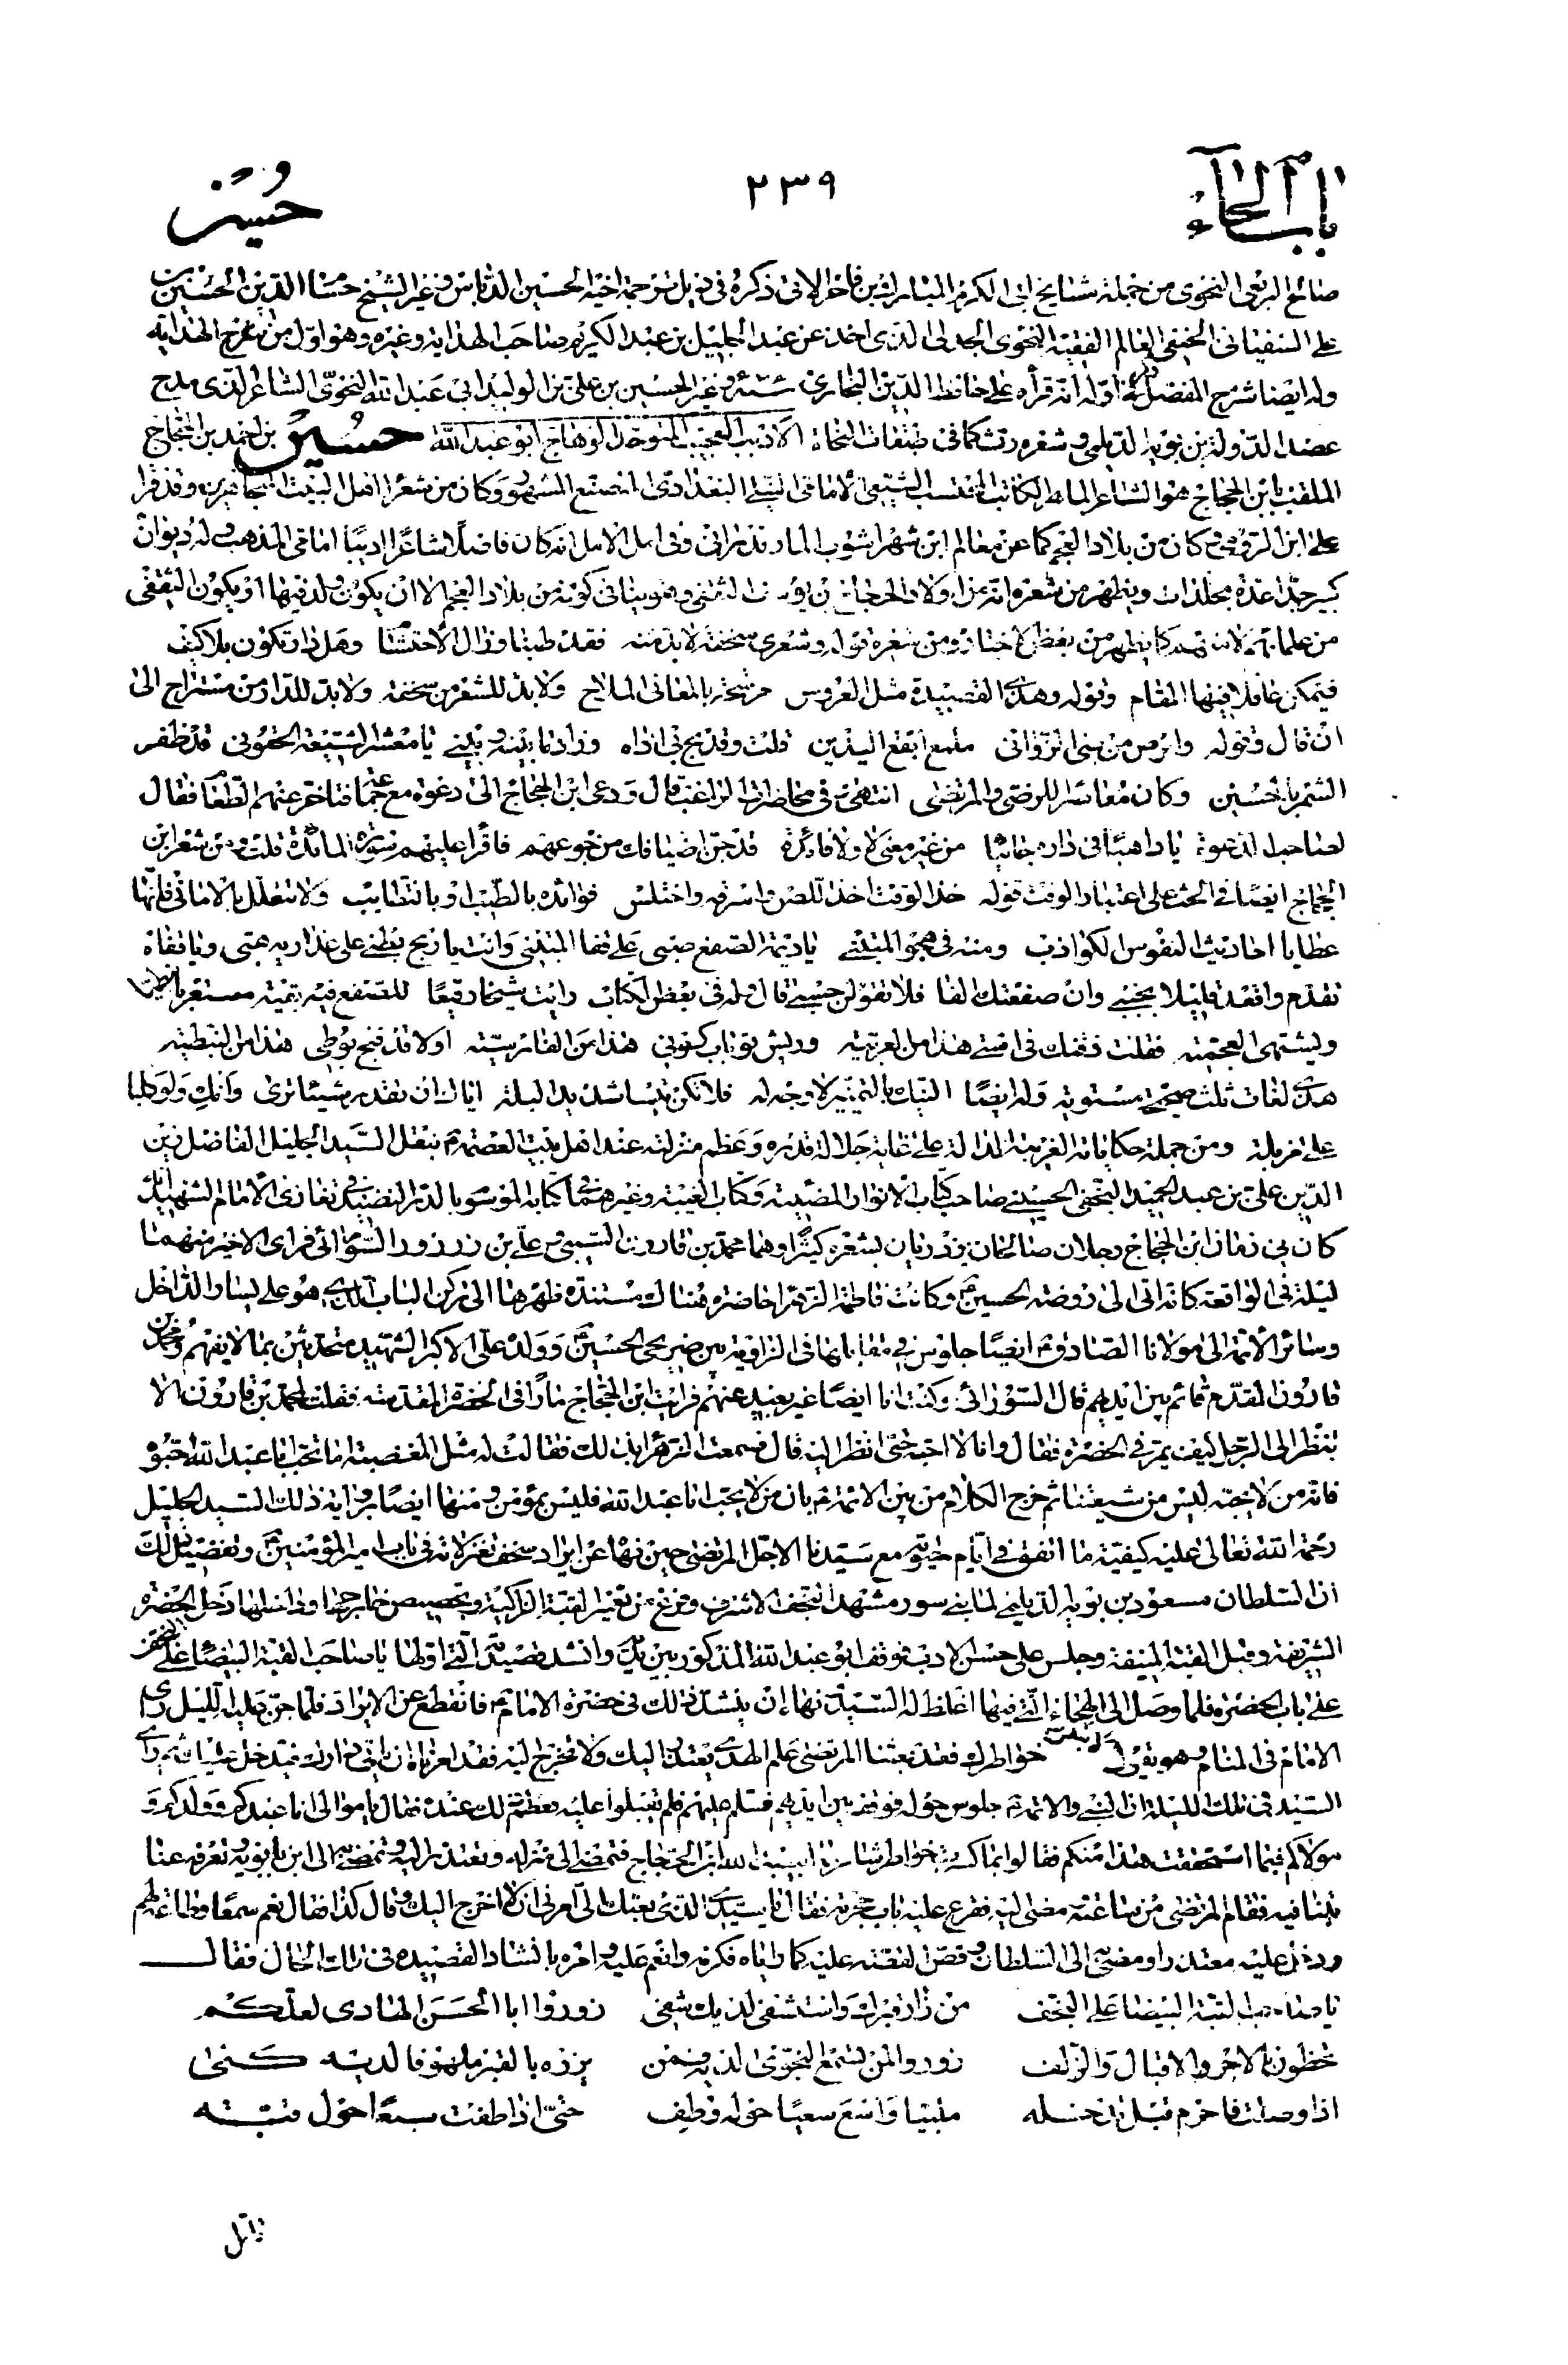 باب الحاء
٢٣٩
حسين
صالح الربعى النحوى من جملة مشايخ ابى الكرم المبارك بن فاخر الاتى ذكره فى ذيل ترجمة اخيه الحسين الدباس وغير الشيخ حسام الدين الحسين بن
على السفناقى الحنفى العالم الفقيه النحوى الجدلى الذى اخذ عن عبد الجليل بن عبد الكريم صاحب الهداية وغيره وهو اول من شرح الهداية
وله ايضا شرح المفصل اوله انه قرأه على حافظ الدين البخارى سنة وغير الحسين بن على بن الوليد ابى عبد الله النحوى الشاعر الذى مدح
عضد الدولة بن بويه الديلمى وشعره كما فى طبقات النحاة الاديب العجيب المتوحد الوهاج ابو عبد الله حسين بن احمد بن الحجاج
الملقب بابن الحجاج هو الشاعر الماهر الكاتب المحتسب الشيعى الامامى النيلى البغدادى المشهور وكان من شعراء اهل البيت المجاهرين وقد قرا
على ابن الرومى كان من بلاد العجم كما عن معالم ابن شهر اشوب المازندرانى وفى امل الامل انه كان فاضلا شاعرا اديبا امامى المذهب له ديوان
كبير جدا عدة مجلدات ويظهر من شعره انه من اولاد الحجاج بن يوسف الثقفى وهو ينافى كونه من بلاد العجم الا ان يكون ولد فيها او يكون الثقفى
من علمائهم كما يظهر من بعض الاخبار ومن شعره قوله وشعرى سخفه لا بد منه فقد طبنا وزال الاحتشام وهل دار تكون بلا كنيف
فيمكن عاقلا فيها المقام وقوله وهذه القصيدة مثل العروس موشحة بالمعانى الملاح ولا بد للشعر من سخفه ولا بد للدار من مستراح الى
ان قال وقوله وابرص من بنى الزوانى ملمع ابقع اليدين قلت وقد لج بى اذاه وزاد ما بينه وبينى يا معشر الشيعة الحقونى قد ظفر
الشمر بالحسين وكان معاشرا للرضى والمرتضى انتهى وفى محاضرات الراغب قال ودعى ابن الحجاج الى دعوة مع جماعة فتاخر عنهم الطعام فقال
لصاحب الدعوة يا ذاهبا فى داره جائيا من غير معنى لا ولا فائدة قد جن اضيافك من جوعهم فاقرأ عليهم سورة المائدة قلت ومن شعر ابن
الحجاج ايضا فى الحث على اغتنام الوقت قوله خذ الوقت اخذ اللص واسرقه واختلس فوائده بالطيب او بالتطايب ولا تتعلل بالامانى فانها
عطايا احاديث النفوس الكواذب ومنه فى هجو المتنبى يا ديمة الصفع صبى على قفا المتنبى وانت يا ريح بطنى على عذاريه هبى ويا قفاه
تقدم واقعد قليلا بجنبى وان صفعتك الفا فلا تقولن حسبى قال وله فى بعض الكتاب رايت شيخا رقيعا للصفع فيه بقية
ويشتهى العجمية فقلت ذقنك فى استى هذا من العربية وريش هذا من الفارسية هذا من النبطية
هذه لغات ثلث صحيحة مستوية وله ايضا فلا تكن تيسا اياك ان تقدم شيئا ترى وانك ولو
على مزبلة ومن جملة حكاياته الغريبة الدالة على غاية جلالة قدره وعظم منزلته عند اهل بيت العصمة بنقل السيد الجليل الفاضل زين
الدين على بن عبد الحميد النجفى الحسينى صاحب كتاب الانوار المضيئة وكتاب الغيبة وغيرهما فى كتابه الموسوم بالدر النضيد فى تعازى الامام الشهيد انه
كان فى زمان ابن الحجاج رجلان صالحان يزدريان بشعره كثيرا وهما محمد بن قارون السيبى وعلى بن زرزور السورائى فراى الاخير منهما
ليلة فى الواقعة كانه اتى الى روضة الحسين وكانت فاطمة الزهراء حاضرة هناك مسندة ظهرها الى ركن الباب الذى هو على يسار الداخل
وسائر الائمة الى مولانا الصادق ايضا جلوس فى مقابلها فى الزاوية بين ضريحى الحسين وولده على الاكبر الشهيد متحدثين بما لا يفهم ومحمد بن
قارون المقدم قائم بين ايديهم قال السورائى وكنت انا ايضا غير بعيد عنهم فرايت ابن الحجاج مارا فى الحضرة المقدسة فقلت لمحمد بن قارون الا
تنظر الى الرجل كيف يمر فى الحضرة فقال وانا لا احبه حتى انظر اليه قال فسمعت الزهراء بذلك فقالت له مثل المغضبة اما تحب ابا عبد الله احبوه
فانه من لا يحبه ليس من شيعتنا ثم خرج الكلام من بين الائمة بان من لا يحب ابا عبد الله فليس بمؤمن ومنها ايضا برواية ذلك السيد الجليل
رحمة الله تعالى عليه كيفية ما اتفق فى ايام حيوته مع سيدنا الاجل المرتضى حين نهاه عن ايراد سخف تغزلاته فى باب امير المؤمنين وتفصيل ذلك
ان السلطان مسعود بن بويه الديلمى لما بنى سور مشهد النجف الاشرف وفرغ من تعمير القبة الزكية وتخصيص خارجها وداخلها دخل الحضرة
الشريفة وقبل القبة المنيفة وجلس على حسن الادب فوقف ابو عبد الله المذكور بين يديه وانشد قصيدته التى اولها يا صاحب القبة البيضاء على النجف
على باب الحضرة فلما وصل الى الهجاء التى فيها اغلظ له السيد نهاه ان ينشد ذلك فى حضرة الامام فانقطع عن الايراد فلما جن عليه الليل راى
الامام فى المنام وهو يقول لا ينكسر خواطرك فقد بعثنا المرتضى علم الهدى يعتذر اليك ولا تخرج اليه فقد امرناه ان ياتى دارك فيدخل عليك ثم راى
السيد فى تلك الليلة ان النبى والائمة جلوس حوله فوقف بين ايديهم فسلم عليهم فلم يقبلوا عليه فعظم ذلك عنده فقال يا موالى انا عبدكم وولدكم و
مولاكم فبما استحققت هذا منكم فقالوا بما كسرت خاطر شاعرنا ابى عبد الله ابن الحجاج فتمضى الى منزله وتعتذر اليه وتمضى به الى ابن بويه وتعرفه عنا
يتنا فيه فقام المرتضى من ساعته مضى اليه فقرع عليه باب حجرته فقال يا سيدى الذى بعثك الى امرنى ان لا اخرج اليك وقال كذا فقال نعم سمعا وطاعة لهم
ودخل عليه معتذرا ومضى به الى السلطان وقص القصة عليه كما راياه فكرمه وانعم عليه وامره بانشاد القصيدة فى تلك الحال فقال
يا صاحب القبة البيضاء على النجف من زار قبرك واستشفى لديك شفى زوروا ابا الحسن الهادى لعلكم
تحظون بالاجر والاقبال والزلف زوروا لمن تسمع النجوى لديه فمن يزره بالقبر ملهوفا لديه كفى
اذا وصلت فاحرم قبل تدخله ملبيا واسع سعيا حوله وطف حتى اذا طفت سبعا حول قبته
تأمل